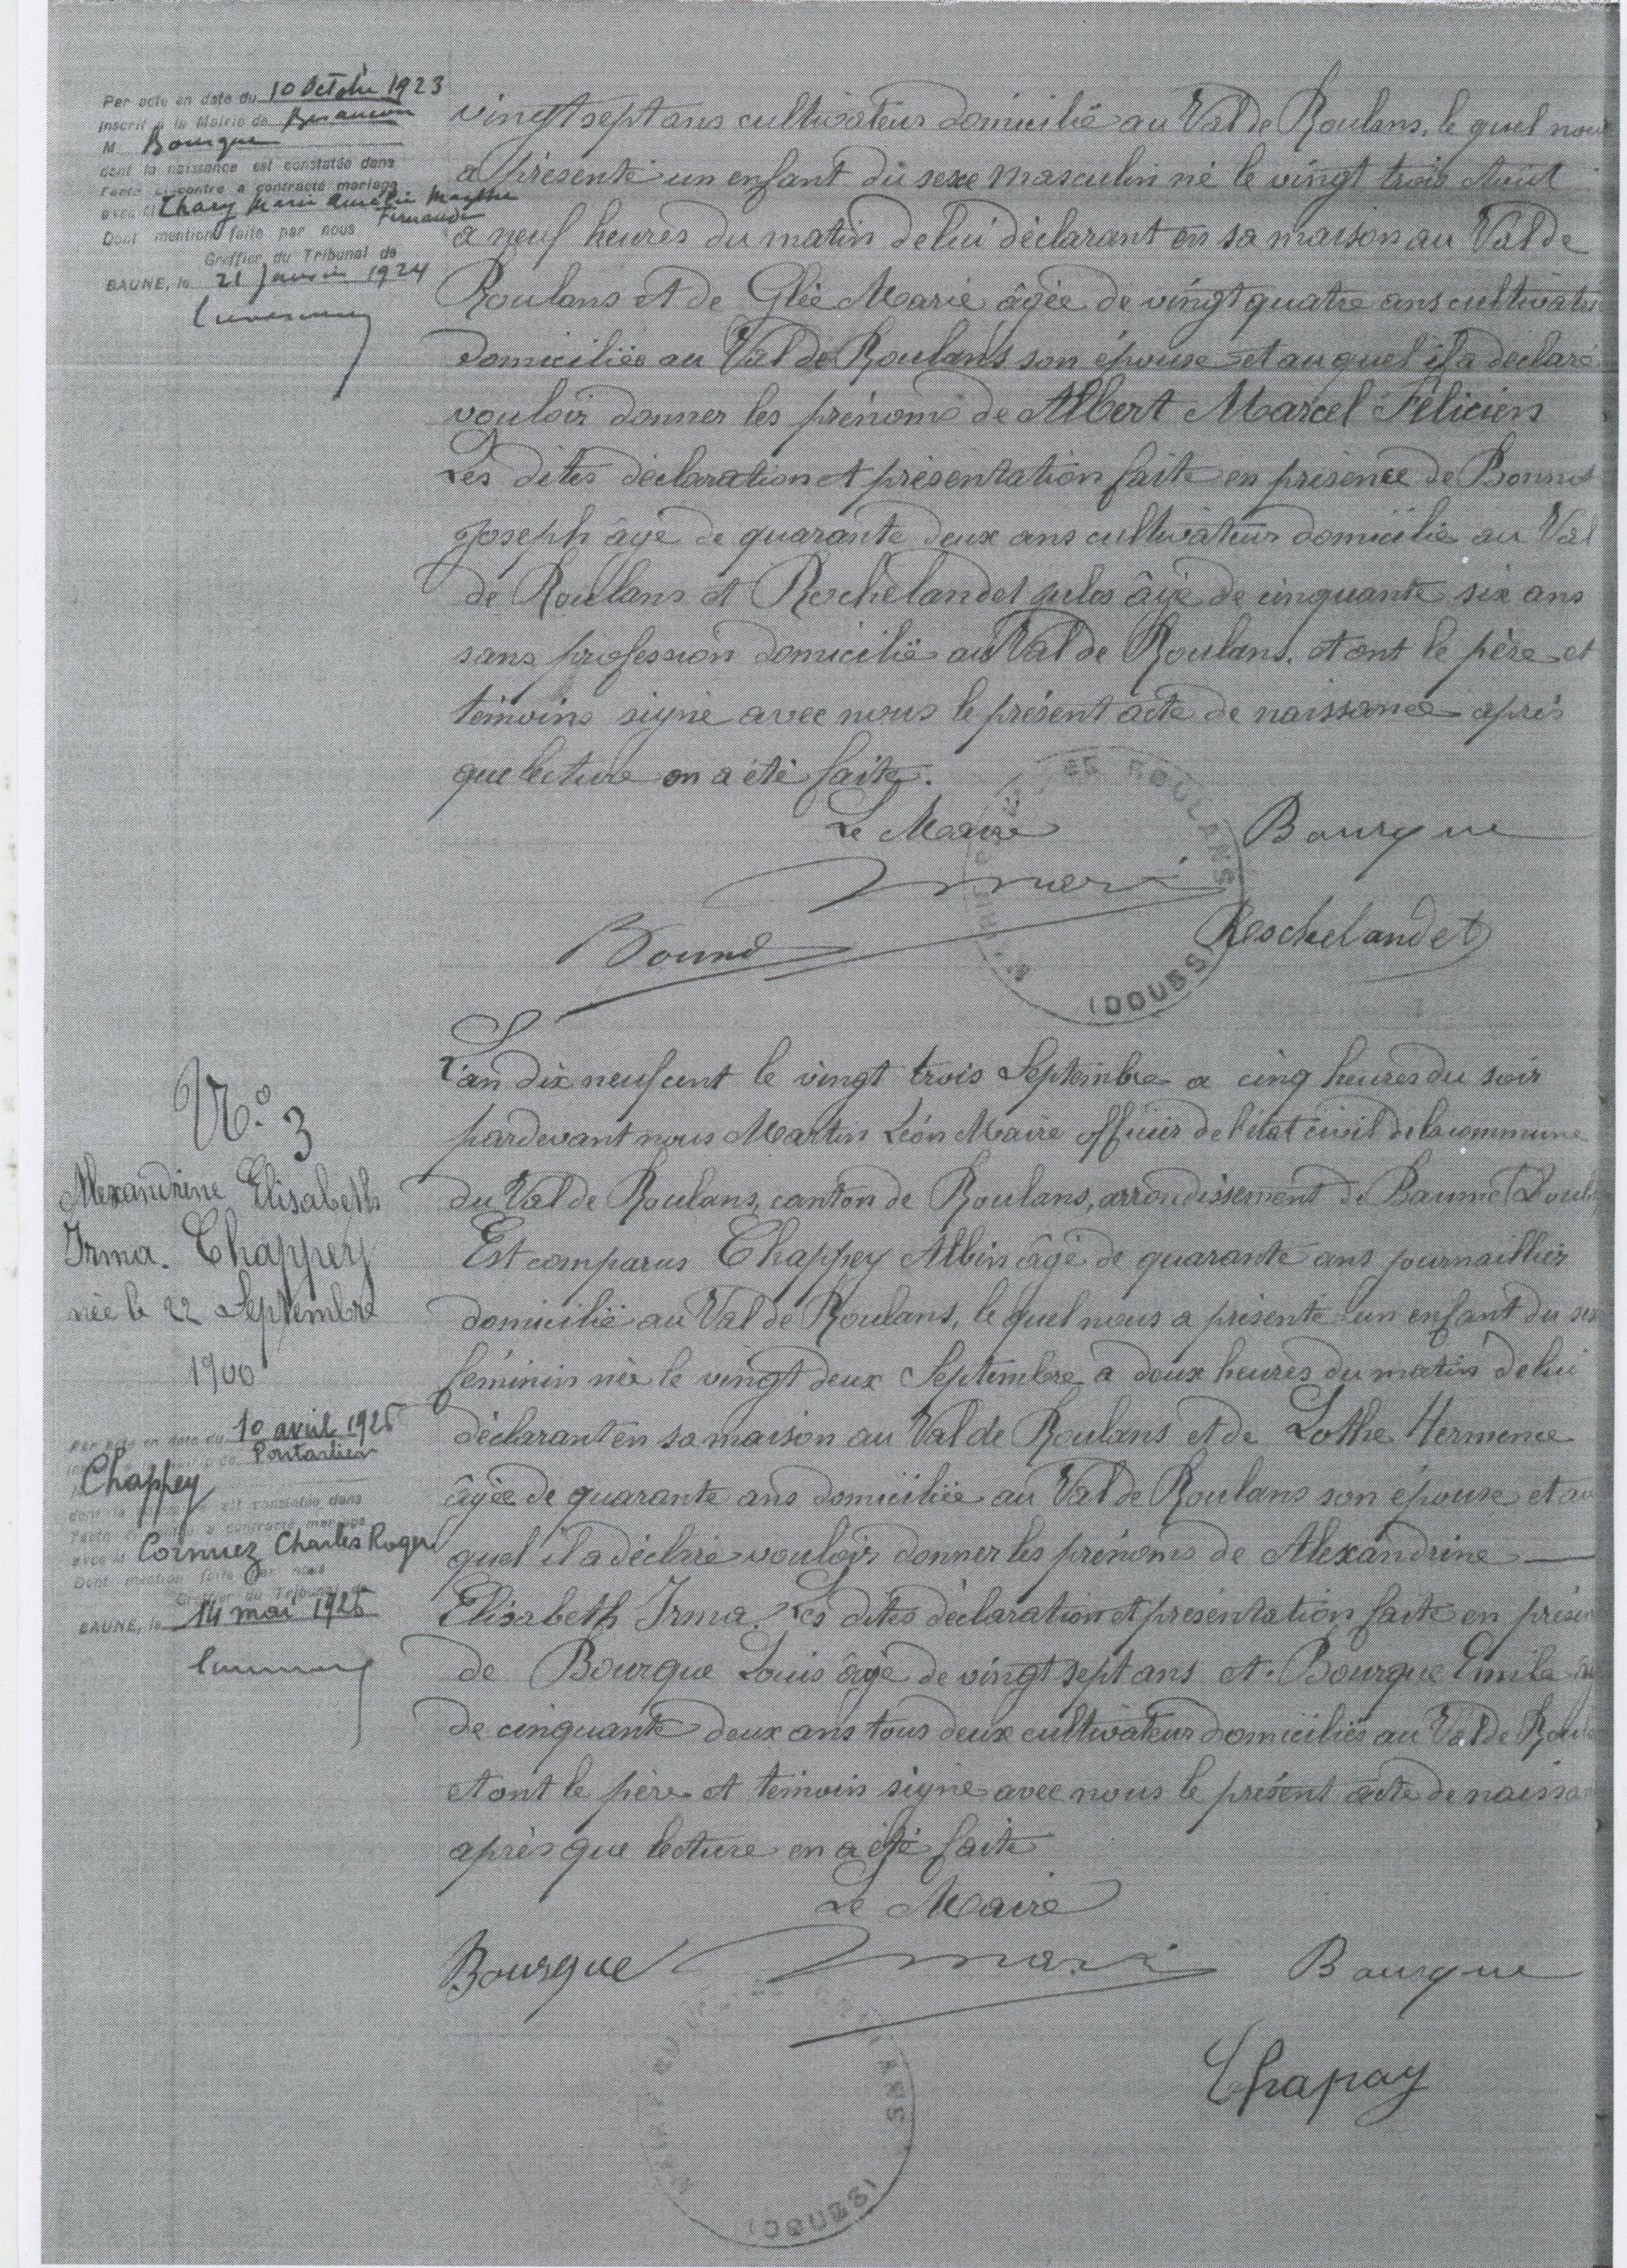 Par acte en date du 10 Octobre 1923
inscrit à la Mairie de Besançon
M Bourque
dont la naissance est constatée dans
l'acte ci-contre a contracté mariage
avec M Marie Amélie Marthe
Fernande
Dont mention faite par nous
Greffier du Tribunal de
BAUME, le 21 Janvier 1924
vingt sept ans cultivateur domicilié au Val de Roulans, le quel nous
a présenté un enfant du sexe masculin né le vingt trois Août
a neuf heures du matin de lui déclarant en sa maison au Val de
Roulans et de Glée Marie âgée de vingt quatre ans cultivatri
domiciliée au Val de Roulans son épouse et auquel il a déclaré
vouloir donner les prénoms de Albert Marcel Félicien
Les dites déclaration et présentation faite en présence de Bonnot
Joseph âgé de quarante deux ans cultivateur domicilié au Val
de Roulans et Rochelandet Jules âgé de cinquante six ans
sans profession domicilié au Val de Roulans. et ont le père et
témoins signé avec nous le présent acte de naissance après
que lecture en a été faite.
Le Maire
Bourque
Reschelandet
MAIRIE DU VAL DE ROULANS
(DOUBS)
N° 3
Alexandrine Elisabeth
Irma. Chappey
née le 22 Septembre
1900
Par acte en date du 10 avril 1926
Pontarlier
Chappey
dont la est constatée dans
l'acte a contracté mariage
avec M Cornuez Charles Roger
Dont mention faite par nous
Greffier du Tribunal de
BAUME, le 14 mai 1926
L'an dix neuf cent le vingt trois Septembre a cinq heures du soir
pardevant nous Martin Léon Maire officier de l'état civil de la commune
du Val de Roulans, canton de Roulans, arrondissement de Baume (Doubs
Est comparus Chappey Albin âgé de quarante ans journaillier
domicilié au Val de Roulans, le quel nous a présenté un enfant du sex
féminin née le vingt deux Septembre a deux heures du matin de lui
déclarant en sa maison au Val de Roulans et de Lothe Hermence
âgée de quarante ans domiciliée au Val de Roulans son épouse et au
quel il a déclaré vouloir donner les prénoms de Alexandrine
Elisabeth Irma. Les dites déclaration et présentation faite en présen
de Bourque Louis âgé de vingt sept ans et Bourque Emile âg
de cinquante deux ans tous deux cultivateur domiciliés au Val de Roula
et ont le père et témoin signé avec nous le présent acte de naissan
après que lecture en a été faite
Le Maire
Bourque
Bourque
Chapay
MAIRIE DU
(DOUBS)